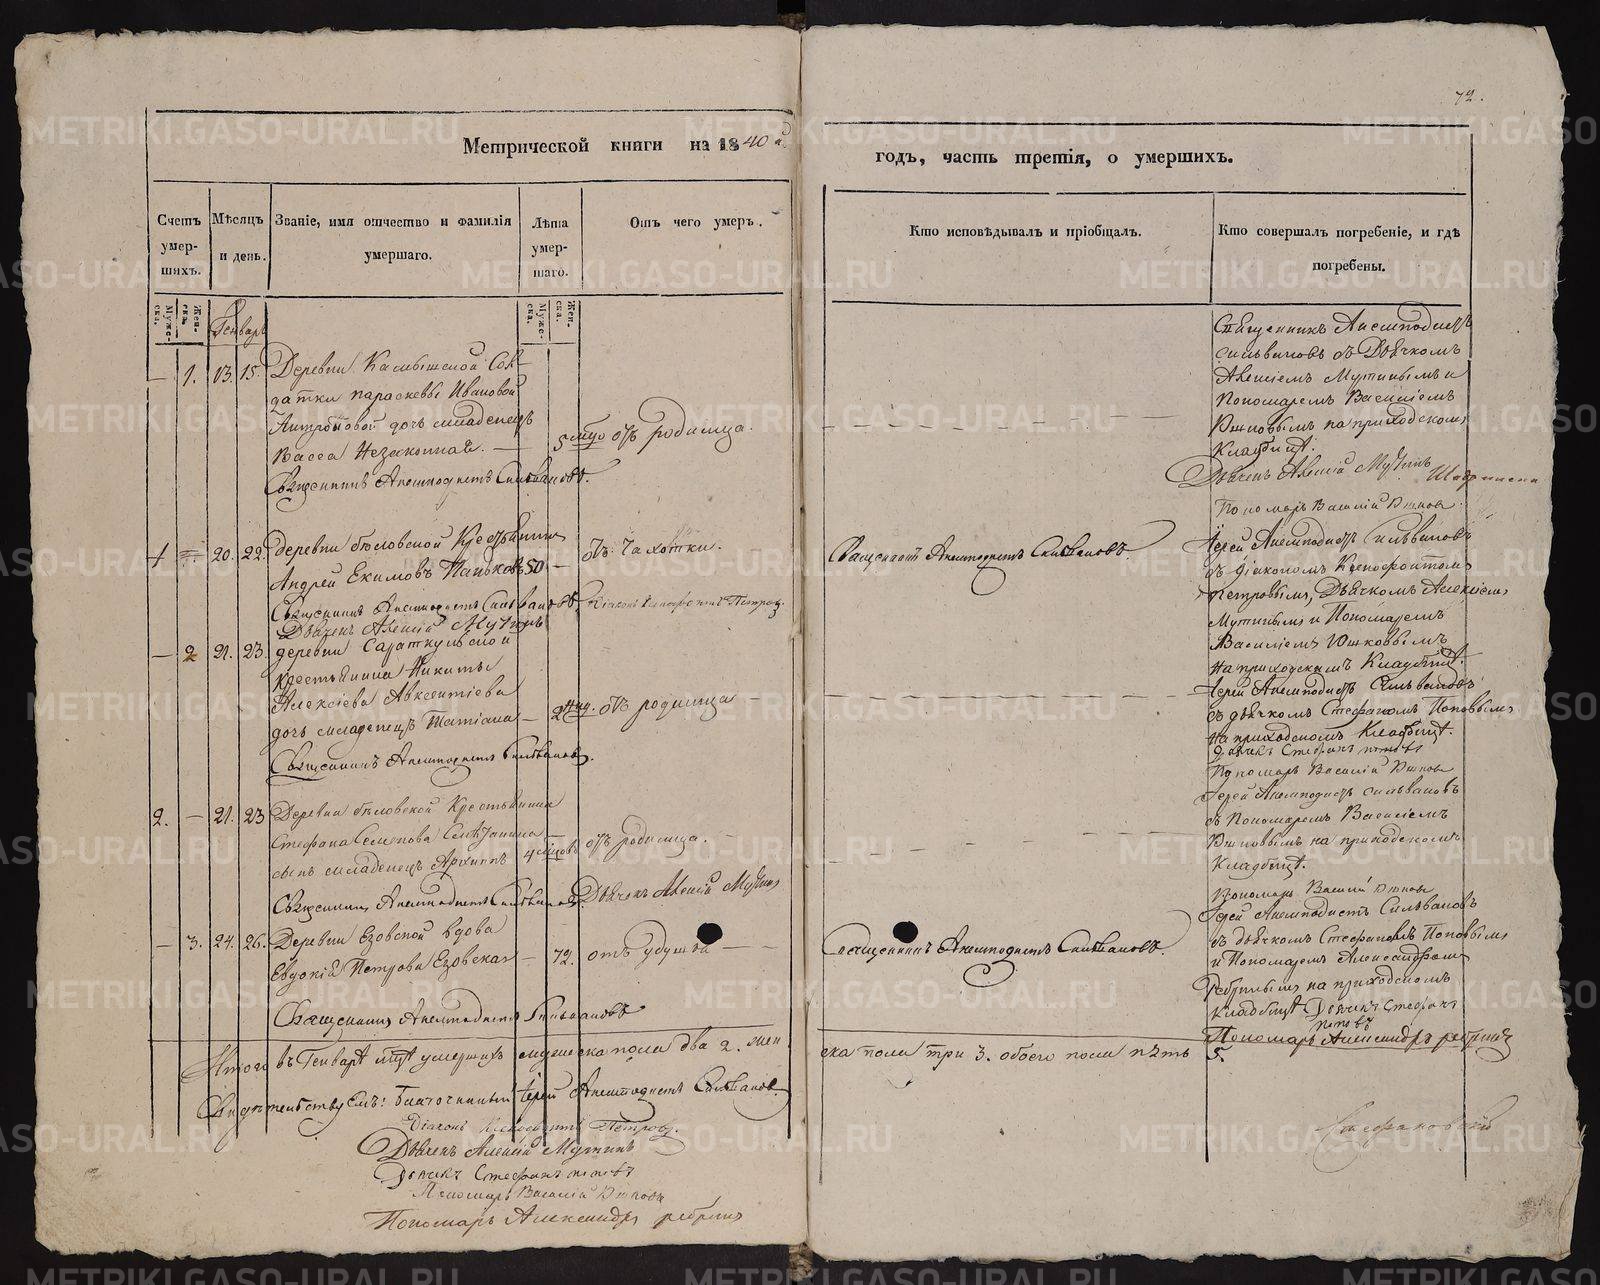 72.
Метрической книги на 1840 й
годъ, часть третія, о умершихъ.
Счетъ умер-шихъ.
Мѣсяцъ и день.
Званіе, имя отчество и фамилія умершаго.
Лѣта умер-шаго.
Отъ чего умеръ.
Кто исповѣдывалъ и пріобщалъ.
Кто совершалъ погребеніе, и гдѣ погребены.
Муже-ска.
Жен-ска.
Муже-ска.
Жен-ска.
Генварь
— 1. 13. 15. Деревни Камышской Сол-
датки Параскевы Ивановой
дочь младенецъ
Васса Незаконная. —
5 отъ родимца.
Священникъ Анемподистъ Сильвановъ.
Священникъ Анемподистъ
Сильвановъ съ Дьячкомъ
Алексіемъ Мутинымъ и
Пономаремъ Василіемъ
Юшковымъ на приходскомъ
Кладбищѣ.
Дьячекъ Алексій Мутинъ
Пономарь Василій Юшковъ
1 20. 22. деревни Бѣловской Крестьянинъ
Андрей Екимовъ Паньковъ 50 —
отъ чахотки.
Священникъ Анемподистъ Сильвановъ.
Діаконъ Ксенофонтъ Петровъ.
Дьячекъ Алексій Мутинъ
Священникъ Анемподистъ Сильвановъ.
Іерей Анемподистъ Сильвановъ
съ діакономъ Ксенофонтомъ
Петровымъ, Дьячкомъ Алексіемъ
Мутинымъ и Пономаремъ
Василіемъ Юшковымъ
на приходскомъ Кладбищѣ.
— 2 21. 23. деревни Сараткульской
крестьянина Никиты
Алексіева Авксентіева
дочь младенецъ Татіана —
2 нед. отъ родимца
Священникъ Анемподистъ Сильвановъ.
Іерей Анемподистъ Сильвановъ
съ дьячкомъ Стефаномъ Поповымъ
на приходскомъ Кладбищѣ.
дьячекъ Стефанъ поповъ
Пономарь Василій Юшковъ
2. — 21. 23 Деревни Бѣловской Крестьянина
Стефана Семенова
сынъ младенецъ Архиппъ
4 отъ родимца.
Священникъ Анемподистъ Сильвановъ.
Дьячекъ Алексій Мутинъ
Іерей Анемподистъ Сильвановъ
съ Пономаремъ Василіемъ
Юшковымъ на приходскомъ
Кладбищѣ.
Пономарь Василій Юшковъ
— 3. 24. 26. Деревни Езовской вдова
Евдокія Петрова Езовская
— 72. отъ удушья
Священникъ Анемподистъ Сильвановъ
Священникъ Анемподистъ Сильвановъ.
Іерей Анемподистъ Сильвановъ
съ дьячкомъ Стефаномъ Поповымъ
и Пономаремъ Александромъ
Ребринымъ на приходскомъ
кладбищѣ Дьячекъ Стефанъ
поповъ
Пономарь Александръ ребринъ
Итого въ Генварѣ мцѣ умершихъ мужеска пола два 2. жен
ска пола три 3. обоего пола пять 5.
Свидѣтельствуемъ: благочинный іерей Анемподистъ Сильвановъ.
Діаконъ Ксенофонтъ Петровъ.
Дьячекъ Алексій Мутинъ
Дьячекъ Стефанъ поповъ
Пономарь Василій Юшковъ
Пономарь Александръ ребринъ
METRIKI.GASO-URAL.RU